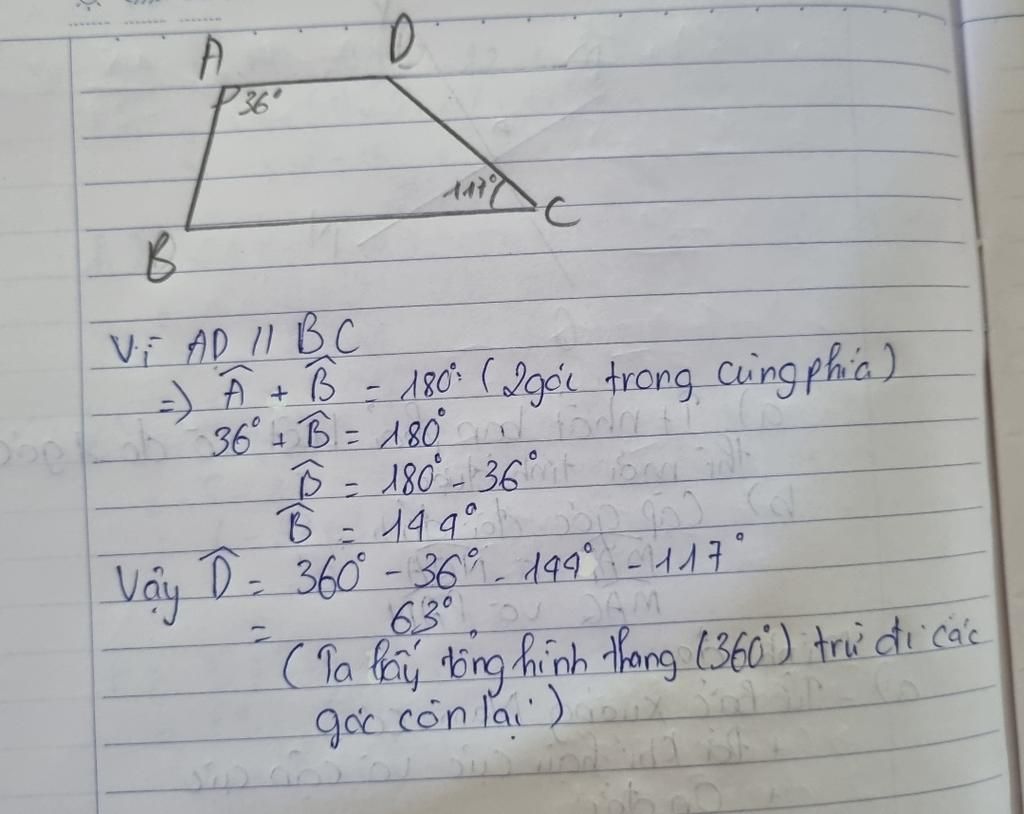 A D
36°
117°
B C
Vì AD // BC
=> Â + B̂ = 180° (2 góc trong cùng phía)
36° + B̂ = 180°
B̂ = 180° - 36°
B̂ = 144°
Vậy D̂ = 360° - 36° - 144° - 117°
= 63°
(Ta lấy tổng hình thang (360°) trừ đi các
góc còn lại)